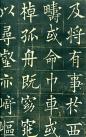 及將有事於西
疇或命巾車或
棹孤舟既窈窕
以尋壑亦崎嶇